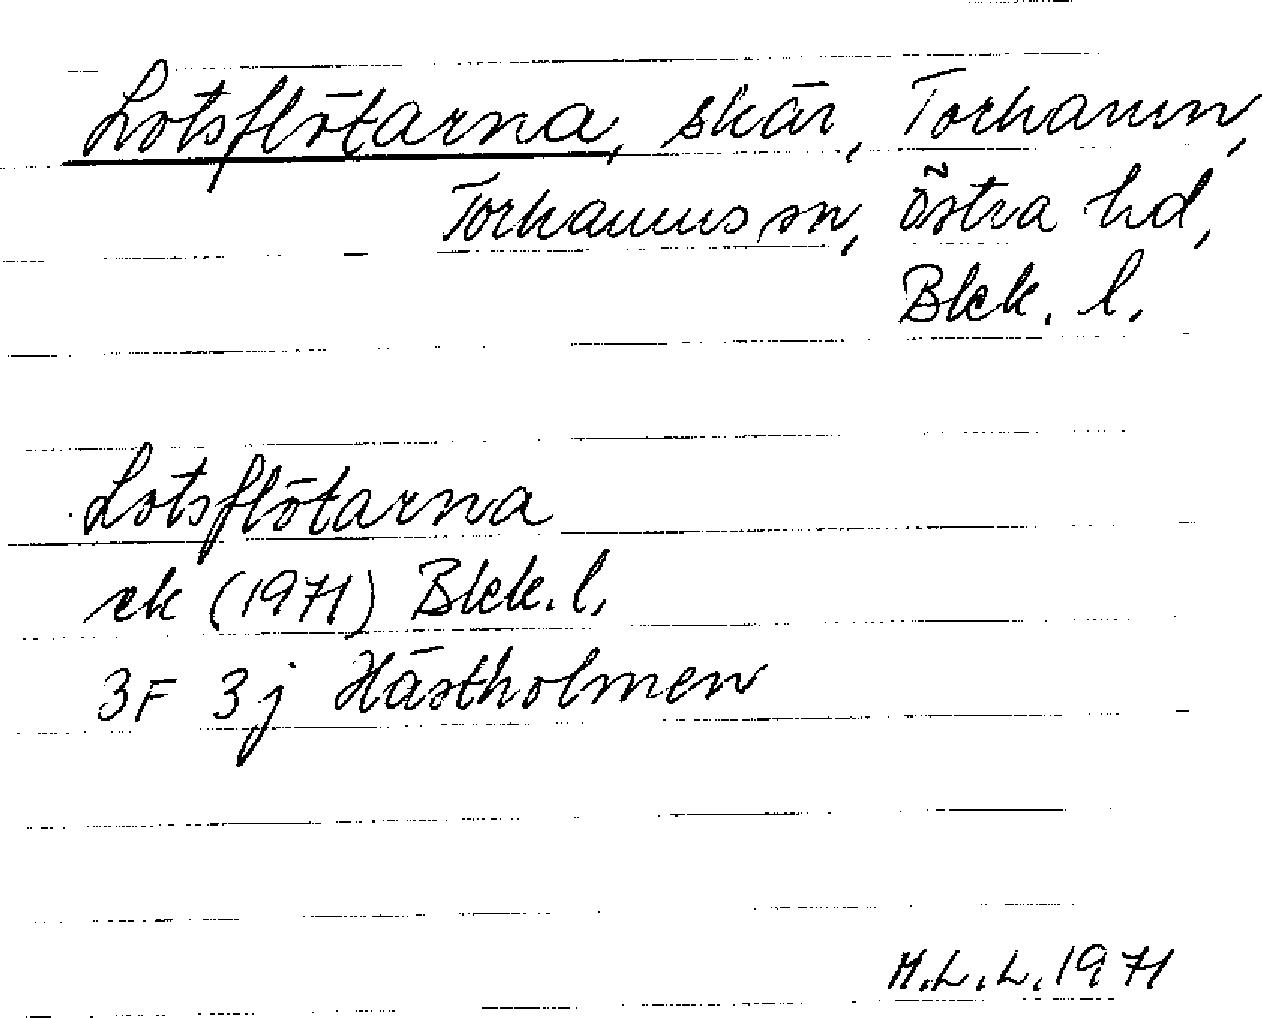 Lotsflötarna, skär, Torhamn,
Torhamns sn, Östra hd,
Blek. l.
Lotsflötarna
ek (1971) Blek. l.
3F 3j Hästholmen
M.L.L. 1971